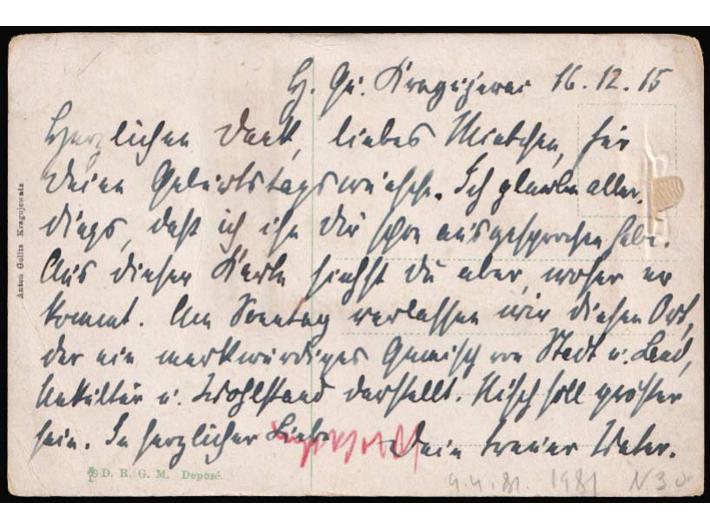 H. Qu. Kragujevac 16.12.15
Herzlichen Dank, liebes Mietchen, für
Deine Geburtstagswünsche. Ich glaube aller-
dings, daß ich ihn Dir schon ausgesprochen habe.
Aus dieser Karte siehst Du aber, woher er
kommt. Am Sonntag verlassen wir diesen Ort,
der ein merkwürdiges Gemisch von Stadt u. Land,
Unkultur u. Wohlstand darstellt. Nisch soll größer
sein. In herzlicher Liebe Dein treuer Vater.
Anton Golitz Kragujewatz
D. R. G. M. Deposé.
9.4.81. 1981 N30